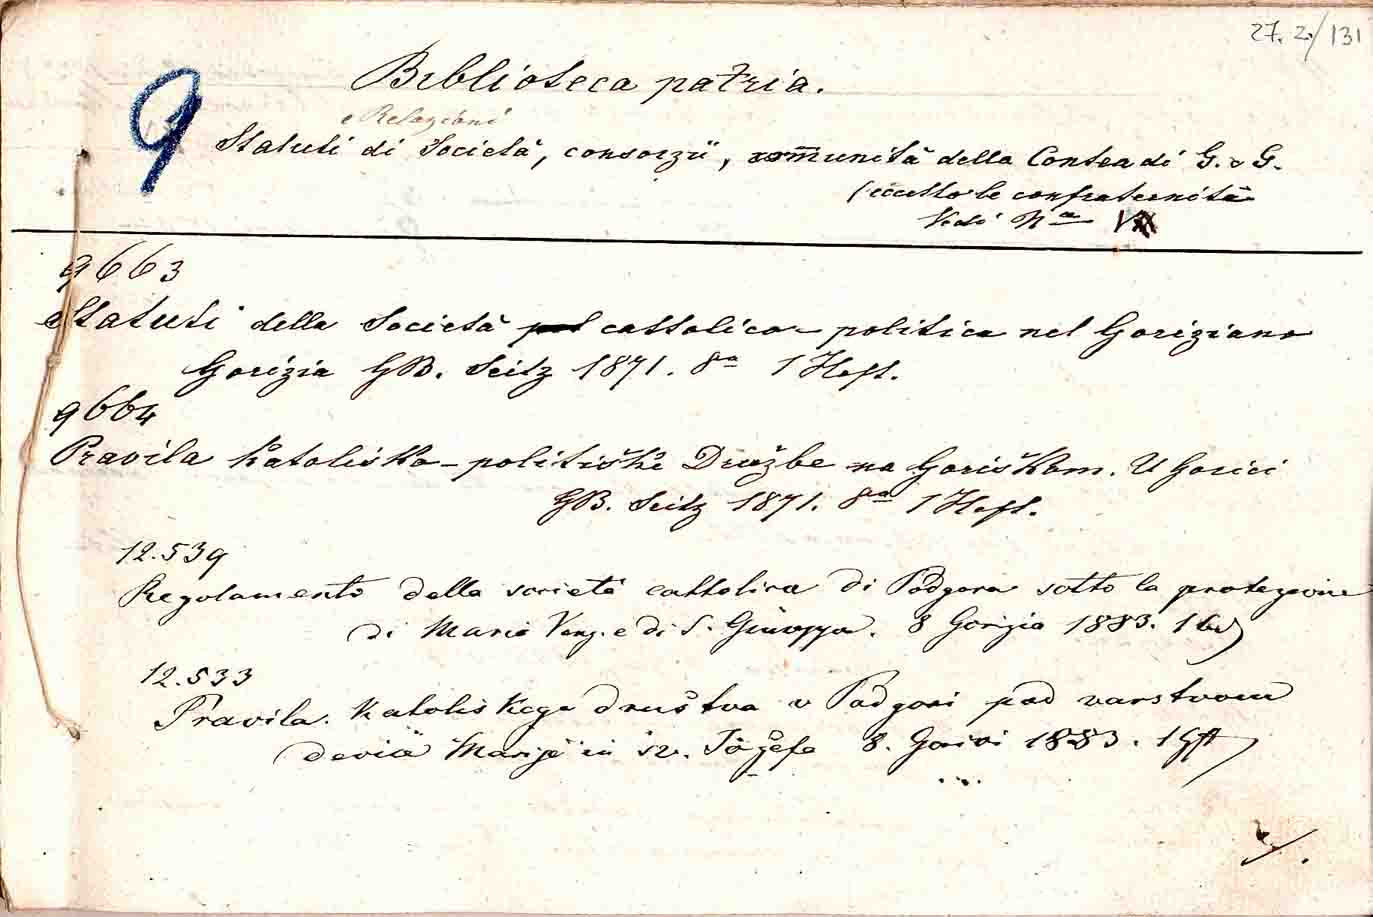 27. 2./131
9
Biblioteca patria.
e Relazioni
Statuti di Società, consorzii, comunità della Contea di G. e G.
(eccetto le confraternità
Vedi Nª
9663
Statuti della Società cattolico-politica nel Goriziano
Gorizia GB. Seitz 1871. 8ª 1 Heft.
9664
Pravila katoliško-politiške Družbe na Goriškom. U Gorici
GB. Seitz 1871. 8ª 1 Heft.
12.539
Regolamento della società cattolica di Podgora sotto la protezione
di Maria Verg. e di S. Giuseppe. 8 Gorizia 1883. 1
12.533
Pravila. Katoliškega društva v Podgori pod varstvom
device Marije in sv. Jožefa 8. Gorici 1883. 1 Hft